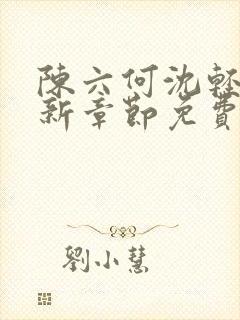 陳六何沈輕
新章節免費
劉小慧